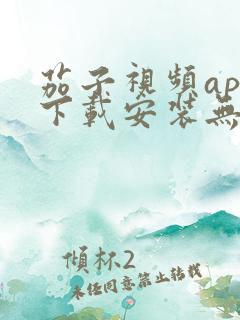 茄子視頻ap
下載安裝無
傾杯2
未經同意禁止轉載